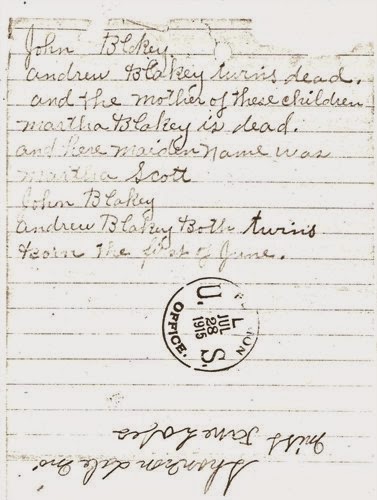 John Blakey
Andrew Blakey twins dead.
and the mother of these children
martha Blakey is dead.
and here maiden Name was
martha Scott
John Blakey
Andrew Blakey Both twins
born the first of June.
U. S.
OFFICE.
JUL
28
1915
miss Jane